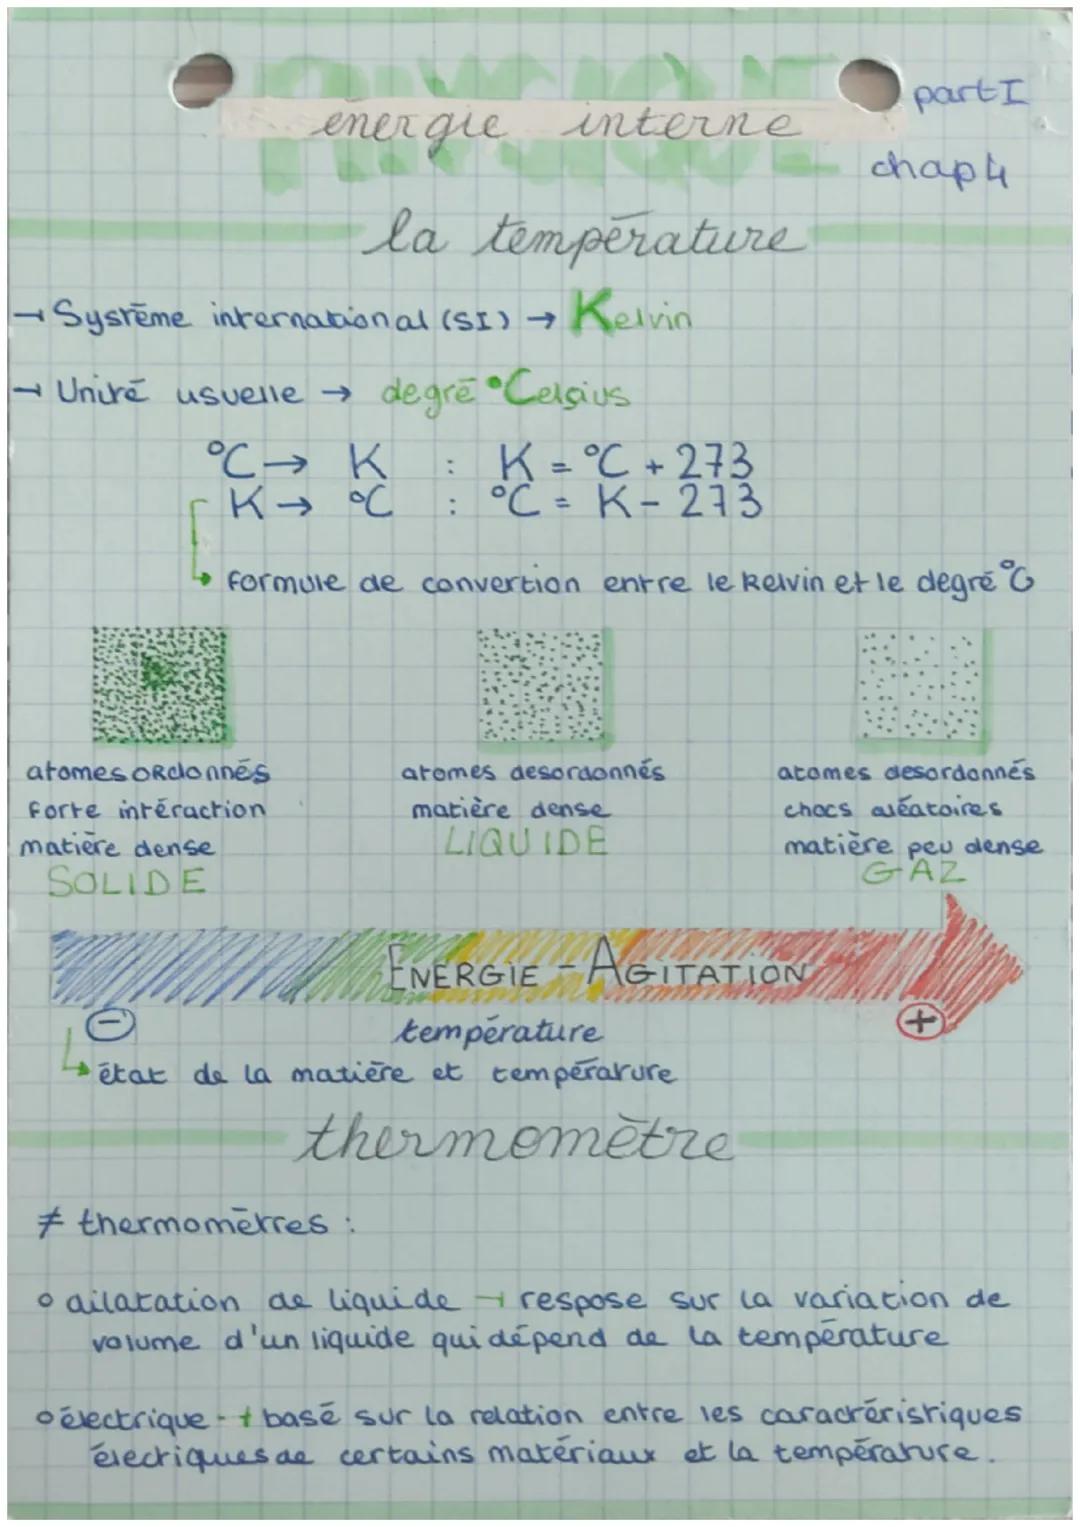 PHYSIQUE
énergie interne
part I
chap 4
la température
→ Système international (SI) → Kelvin
→ Unité usuelle → degré °Celsius
°C → K : K = °C + 273
K → °C : °C = K - 273
↳ formule de convertion entre le Kelvin et le degré °C
atomes ordonnés
forte intéraction
matière dense
SOLIDE
atomes desordonnés
matière dense
LIQUIDE
atomes desordonnés
chocs aléatoires
matière peu dense
GAZ
ENERGIE - AGITATION
- température +
↳ état de la matière et température
thermomètre
≠ thermomètres :
° dilatation de liquide → respose sur la variation de
volume d'un liquide qui dépend de la température
° électrique → basé sur la relation entre les caractéristiques
électriques de certains matériaux et la température.